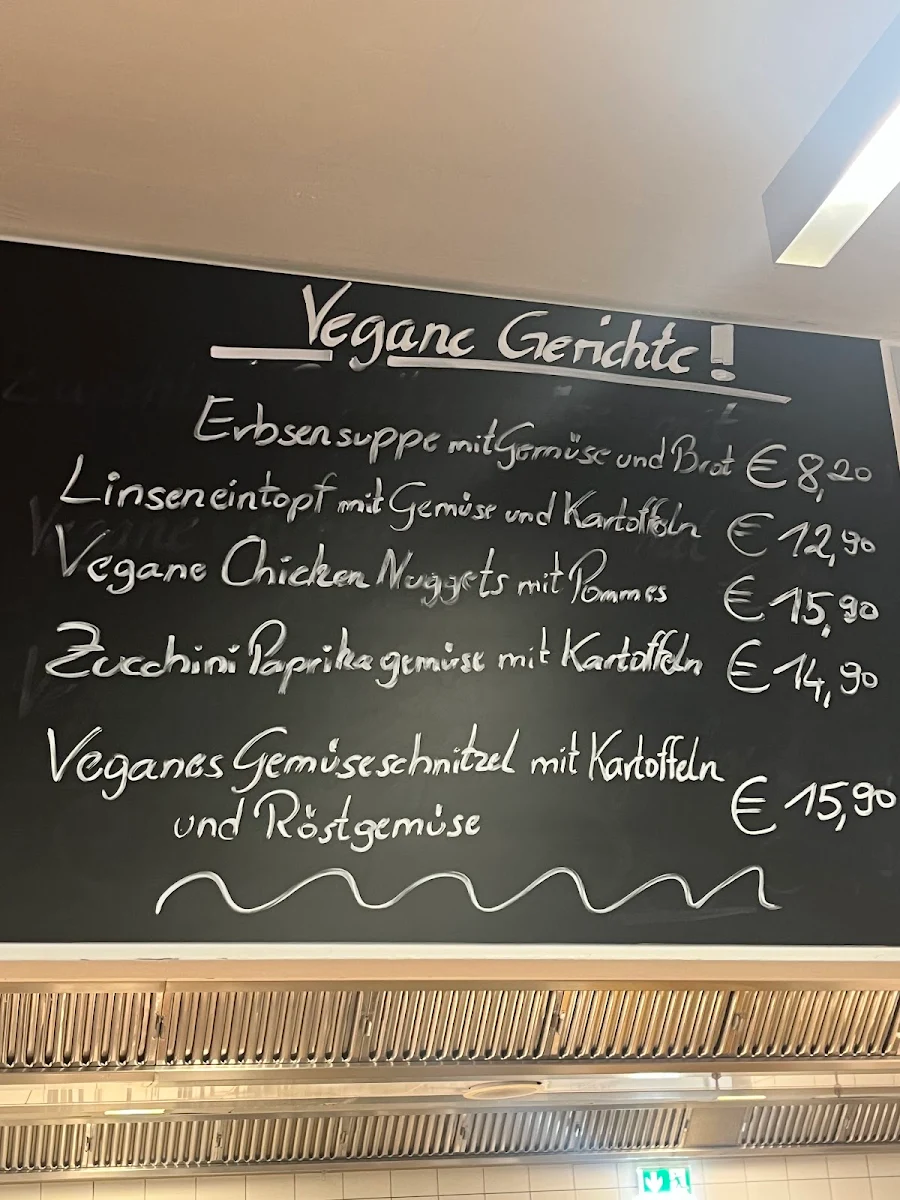 Vegane Gerichte!
Erbsensuppe mit Gemüse und Brot € 8,20
Linseneintopf mit Gemüse und Kartoffeln € 12,90
Vegane Chicken Nuggets mit Pommes € 15,90
Zucchini Paprikagemüse mit Kartoffeln € 14,90
Veganes Gemüseschnitzel mit Kartoffeln
und Röstgemüse € 15,90